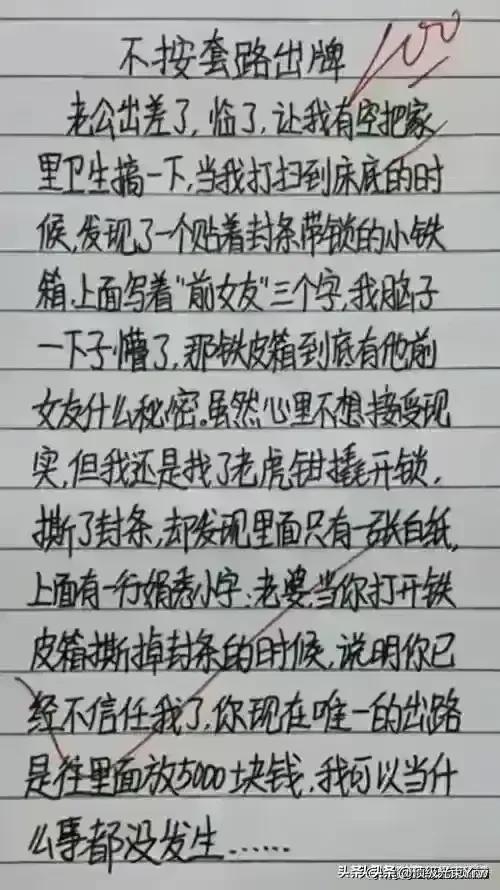 不按套路出牌
100
老公出差了,临了,让我有空把家
里卫生搞一下,当我打扫到床底的时
候,发现了一个贴着封条带锁的小铁
箱,上面写着“前女友”三个字,我脑子
一下子懵了,那铁皮箱到底有他前
女友什么秘密。虽然心里不想接受现
实,但我还是找了老虎钳撬开锁,
撕了封条,却发现里面只有一张白纸,
上面有一行娟秀小字:老婆,当你打开铁
皮箱撕掉封条的时候,说明你已
经不信任我了,你现在唯一的出路
是往里面放5000块钱,我可以当什
么事都没发生......
头条 @顶级光束